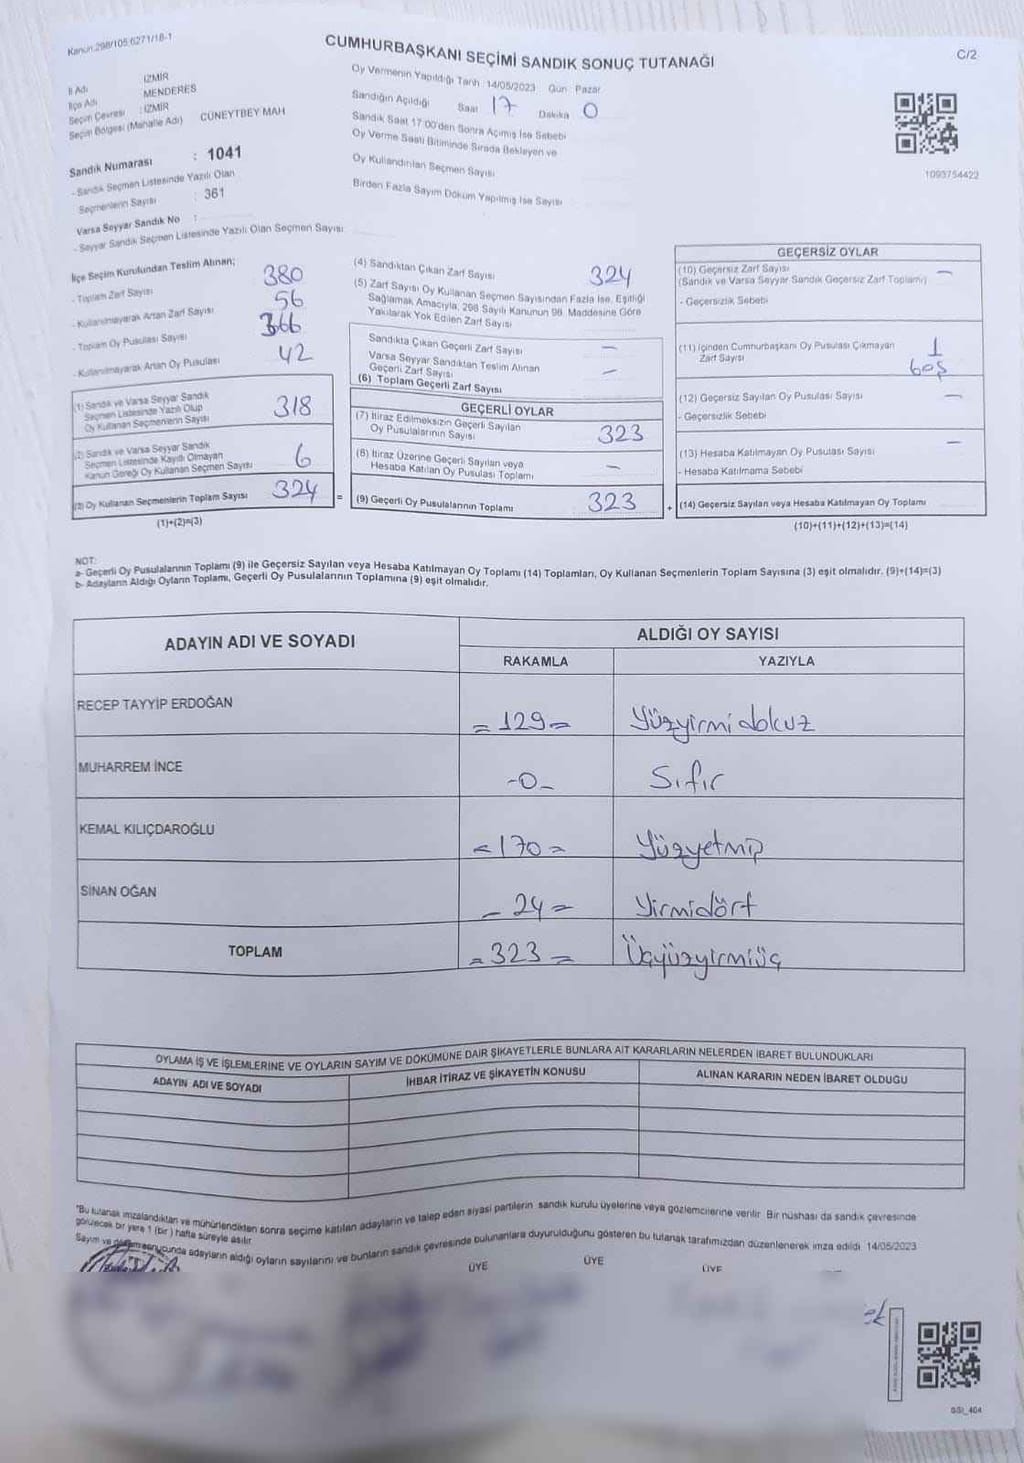 Kanun:298/105;6271/18-1
CUMHURBAŞKANI SEÇİMİ SANDIK SONUÇ TUTANAĞI
C/2
İl Adı İZMİR
İlçe Adı MENDERES
Seçim Çevresi : İZMİR
Seçim Bölgesi (Mahalle Adı) CÜNEYTBEY MAH
Sandık Numarası : 1041
- Sandık Seçmen Listesinde Yazılı Olan
Seçmenlerin Sayısı : 361
Varsa Seyyar Sandık No :
- Seyyar Sandık Seçmen Listesinde Yazılı Olan Seçmen Sayısı
Oy Vermenin Yapıldığı Tarih 14/05/2023 Gün Pazar
Sandığın Açıldığı Saat 17 Dakika 0
Sandık Saat 17:00'den Sonra Açımış İse Sebebi
Oy Verme Saati Bitiminde Sırada Bekleyen ve
Oy Kullandırılan Seçmen Sayısı
Birden Fazla Sayım Döküm Yapılmış İse Sayısı
1093754422
İlçe Seçim Kurulundan Teslim Alınan;
- Toplam Zarf Sayısı 380
- Kullanılmayarak Artan Zarf Sayısı 56
- Toplam Oy Pusulası Sayısı 366
- Kullanılmayarak Artan Oy Pusulası 42
(1) Sandık ve Varsa Seyyar Sandık
Seçmen Listesinde Yazılı Olup
Oy Kullanan Seçmenlerin Sayısı 318
(2) Sandık ve Varsa Seyyar Sandık
Seçmen Listesinde Kayıtlı Olmayan
Kanun Gereği Oy Kullanan Seçmen Sayısı 6
(3) Oy Kullanan Seçmenlerin Toplam Sayısı 324 =
(1)+(2)=(3)
(4) Sandıktan Çıkan Zarf Sayısı 324
(5) Zarf Sayısı Oy Kullanan Seçmen Sayısından Fazla İse, Eşitliği
Sağlamak Amacıyla, 298 Sayılı Kanunun 98. Maddesine Göre
Yakılarak Yok Edilen Zarf Sayısı
Sandıkta Çıkan Geçerli Zarf Sayısı –
Varsa Seyyar Sandıktan Teslim Alınan
Geçerli Zarf Sayısı –
(6) Toplam Geçerli Zarf Sayısı
GEÇERLİ OYLAR
(7) İtiraz Edilmeksizin Geçerli Sayılan
Oy Pusulalarının Sayısı 323
(8) İtiraz Üzerine Geçerli Sayılan veya
Hesaba Katılan Oy Pusulası Toplamı –
(9) Geçerli Oy Pusulalarının Toplamı 323 +
GEÇERSİZ OYLAR
(10) Geçersiz Zarf Sayısı –
(Sandık ve Varsa Seyyar Sandık Geçersiz Zarf Toplamı)
- Geçersizlik Sebebi
(11) İçinden Cumhurbaşkanı Oy Pusulası Çıkmayan 1
Zarf Sayısı boş
(12) Geçersiz Sayılan Oy Pusulası Sayısı –
- Geçersizlik Sebebi
(13) Hesaba Katılmayan Oy Pusulası Sayısı –
- Hesaba Katılmama Sebebi
(14) Geçersiz Sayılan veya Hesaba Katılmayan Oy Toplamı
(10)+(11)+(12)+(13)=(14)
NOT:
a- Geçerli Oy Pusulalarının Toplamı (9) ile Geçersiz Sayılan veya Hesaba Katılmayan Oy Toplamı (14) Toplamları, Oy Kullanan Seçmenlerin Toplam Sayısına (3) eşit olmalıdır. (9)+(14)=(3)
b- Adayların Aldığı Oyların Toplamı, Geçerli Oy Pusulalarının Toplamına (9) eşit olmalıdır.
ADAYIN ADI VE SOYADI ALDIĞI OY SAYISI
RAKAMLA YAZIYLA
RECEP TAYYİP ERDOĞAN = 129 = Yüzyirmidokuz
MUHARREM İNCE - 0 - Sıfır
KEMAL KILIÇDAROĞLU = 170 = Yüzyetmiş
SİNAN OĞAN - 24 = Yirmidört
TOPLAM = 323 = Üçyüzyirmiüç
OYLAMA İŞ VE İŞLEMLERİNE VE OYLARIN SAYIM VE DÖKÜMÜNE DAİR ŞİKAYETLERLE BUNLARA AİT KARARLARIN NELERDEN İBARET BULUNDUKLARI
ADAYIN ADI VE SOYADI İHBAR İTİRAZ VE ŞİKAYETİN KONUSU ALINAN KARARIN NEDEN İBARET OLDUĞU
"Bu tutanak imzalandıktan ve mühürlendikten sonra seçime katılan adayların ve talep eden siyasi partilerin sandık kurulu üyelerine veya gözlemcilerine verilir. Bir nüshası da sandık çevresinde
görülecek bir yere 1 (bir) hafta süreyle asılır.
Sayım ve döküm sonucunda adayların aldığı oyların sayılarını ve bunların sandık çevresinde bulunanlara duyurulduğunu gösteren bu tutanak tarafımızdan düzenlenerek imza edildi 14/05/2023
ÜYE ÜYE ÜYE
SSI_404